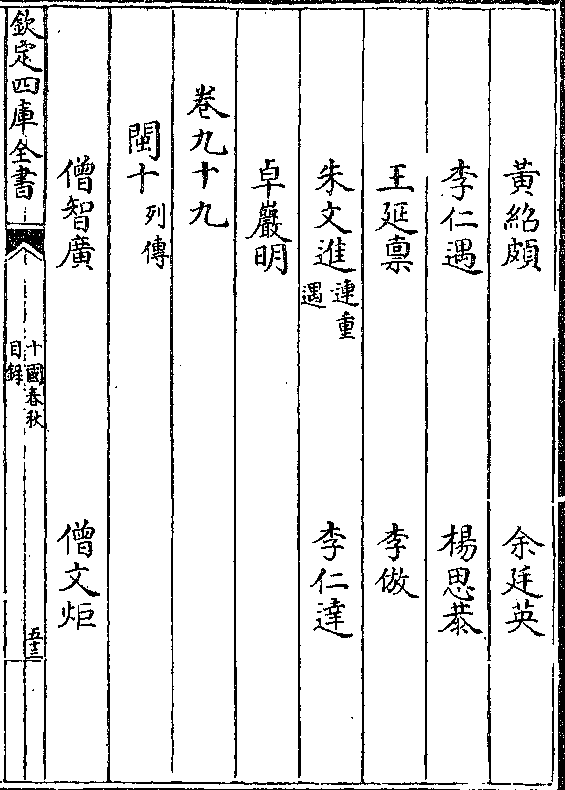 黃紹頗 余廷英
李仁遇 楊思恭
王延禀 李倣
朱文進 連重遇 李仁達
卓巖明
卷九十九
閩十 列傳
僧智廣 僧文炬
欽定四庫全書 十國春秋 目録 五十三